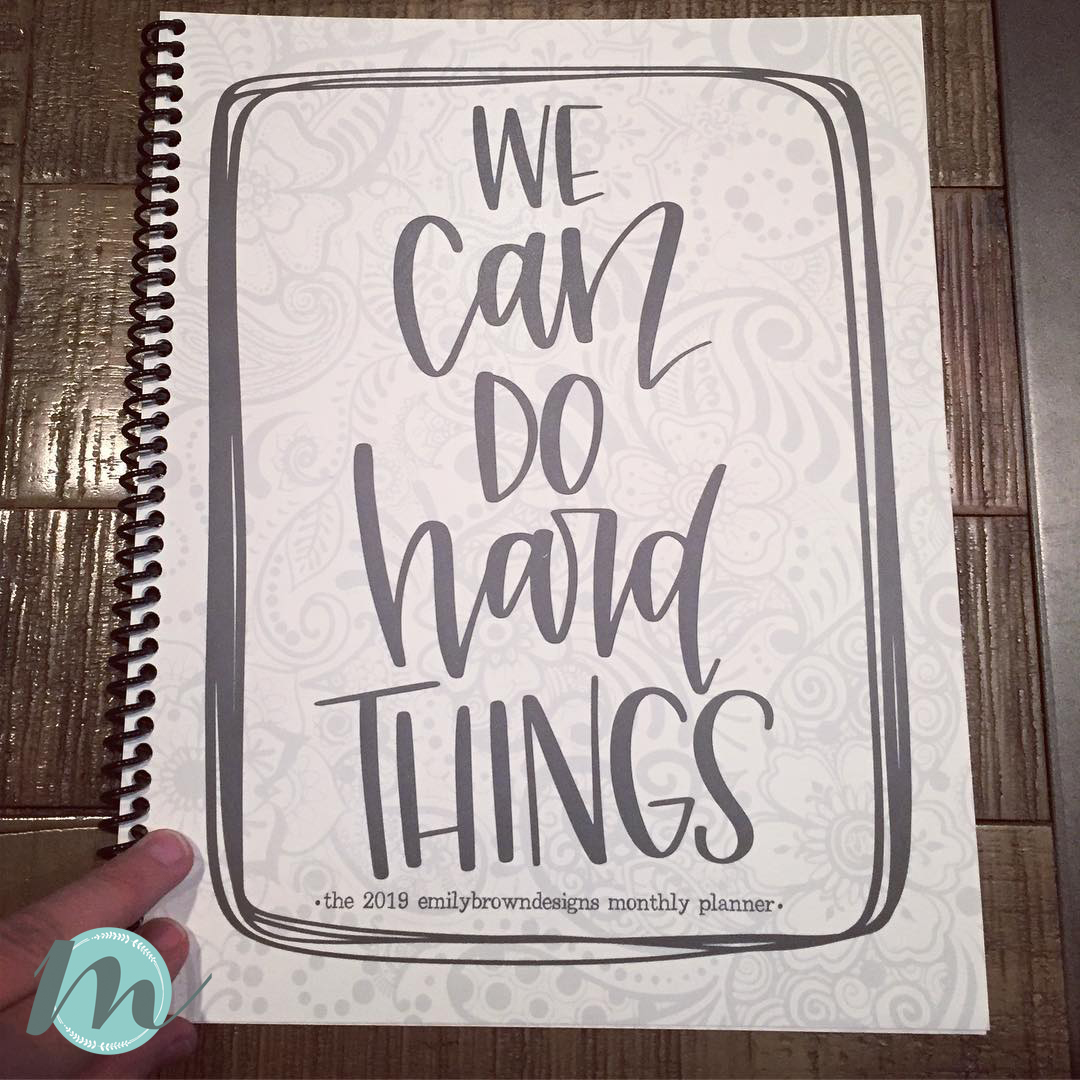 WE
can
DO
hard
THINGS
•the 2019 emilybrowndesigns monthly planner•
m